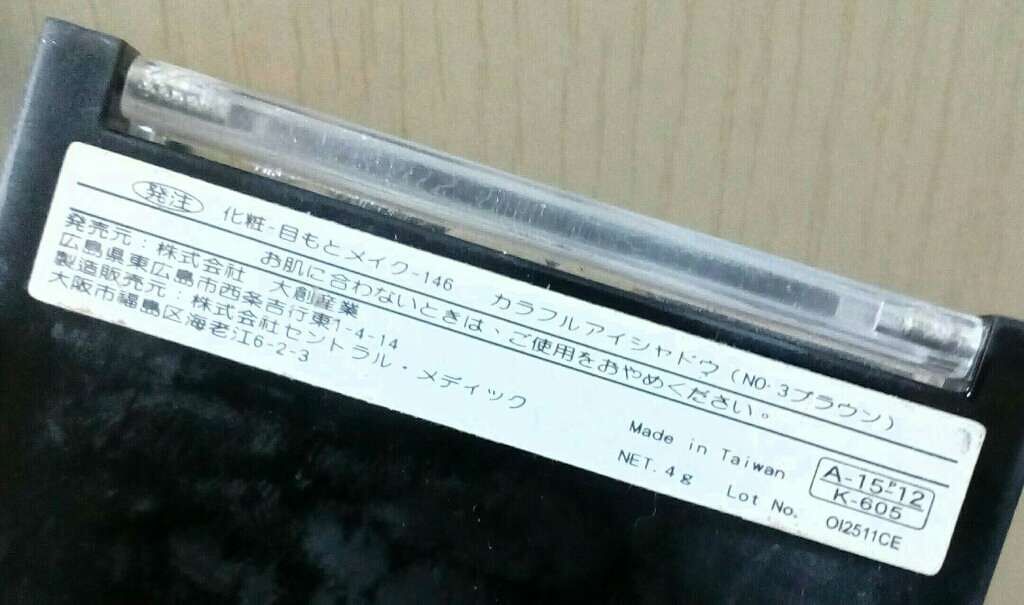 発注 化粧-目もとメイク-146 カラフルアイシャドウ(NO.3ブラウン)
お肌に合わないときは、ご使用をおやめください。
発売元:株式会社 大創産業
広島県東広島市西条吉行東1-4-14
製造販売元:株式会社セントラル・メディック
大阪市福島区海老江6-2-3
Made in Taiwan
NET. 4g Lot No. OI2511CE
A-15-P12
K-605